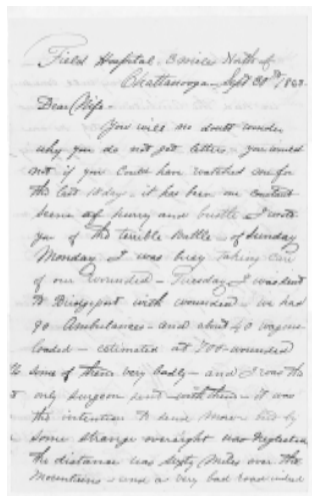 Field Hospital - 3 mile North of
Chattanooga - Sept 30th 1863
Dear Wife -
You will no doubt wonder
why you do not get letters - you would
not if you could have watched me for
the last 10 days - it has been one constant
scene of hurry and bustle I wrote
you of the terrible Battle - of Sunday
Monday I was busy taking care
of our wounded - Tuesday I was sent
to Bridgeport with wounded - we had
80 Ambulances - and about 40 wagons
loaded - estimated at 700 - wounded
some of them very badly - and I was the
only surgeon sent with them - it was
the intention to send more but by
some strange oversight was neglected
the distance was sixty miles over the
Mountains - and a very bad road indeed